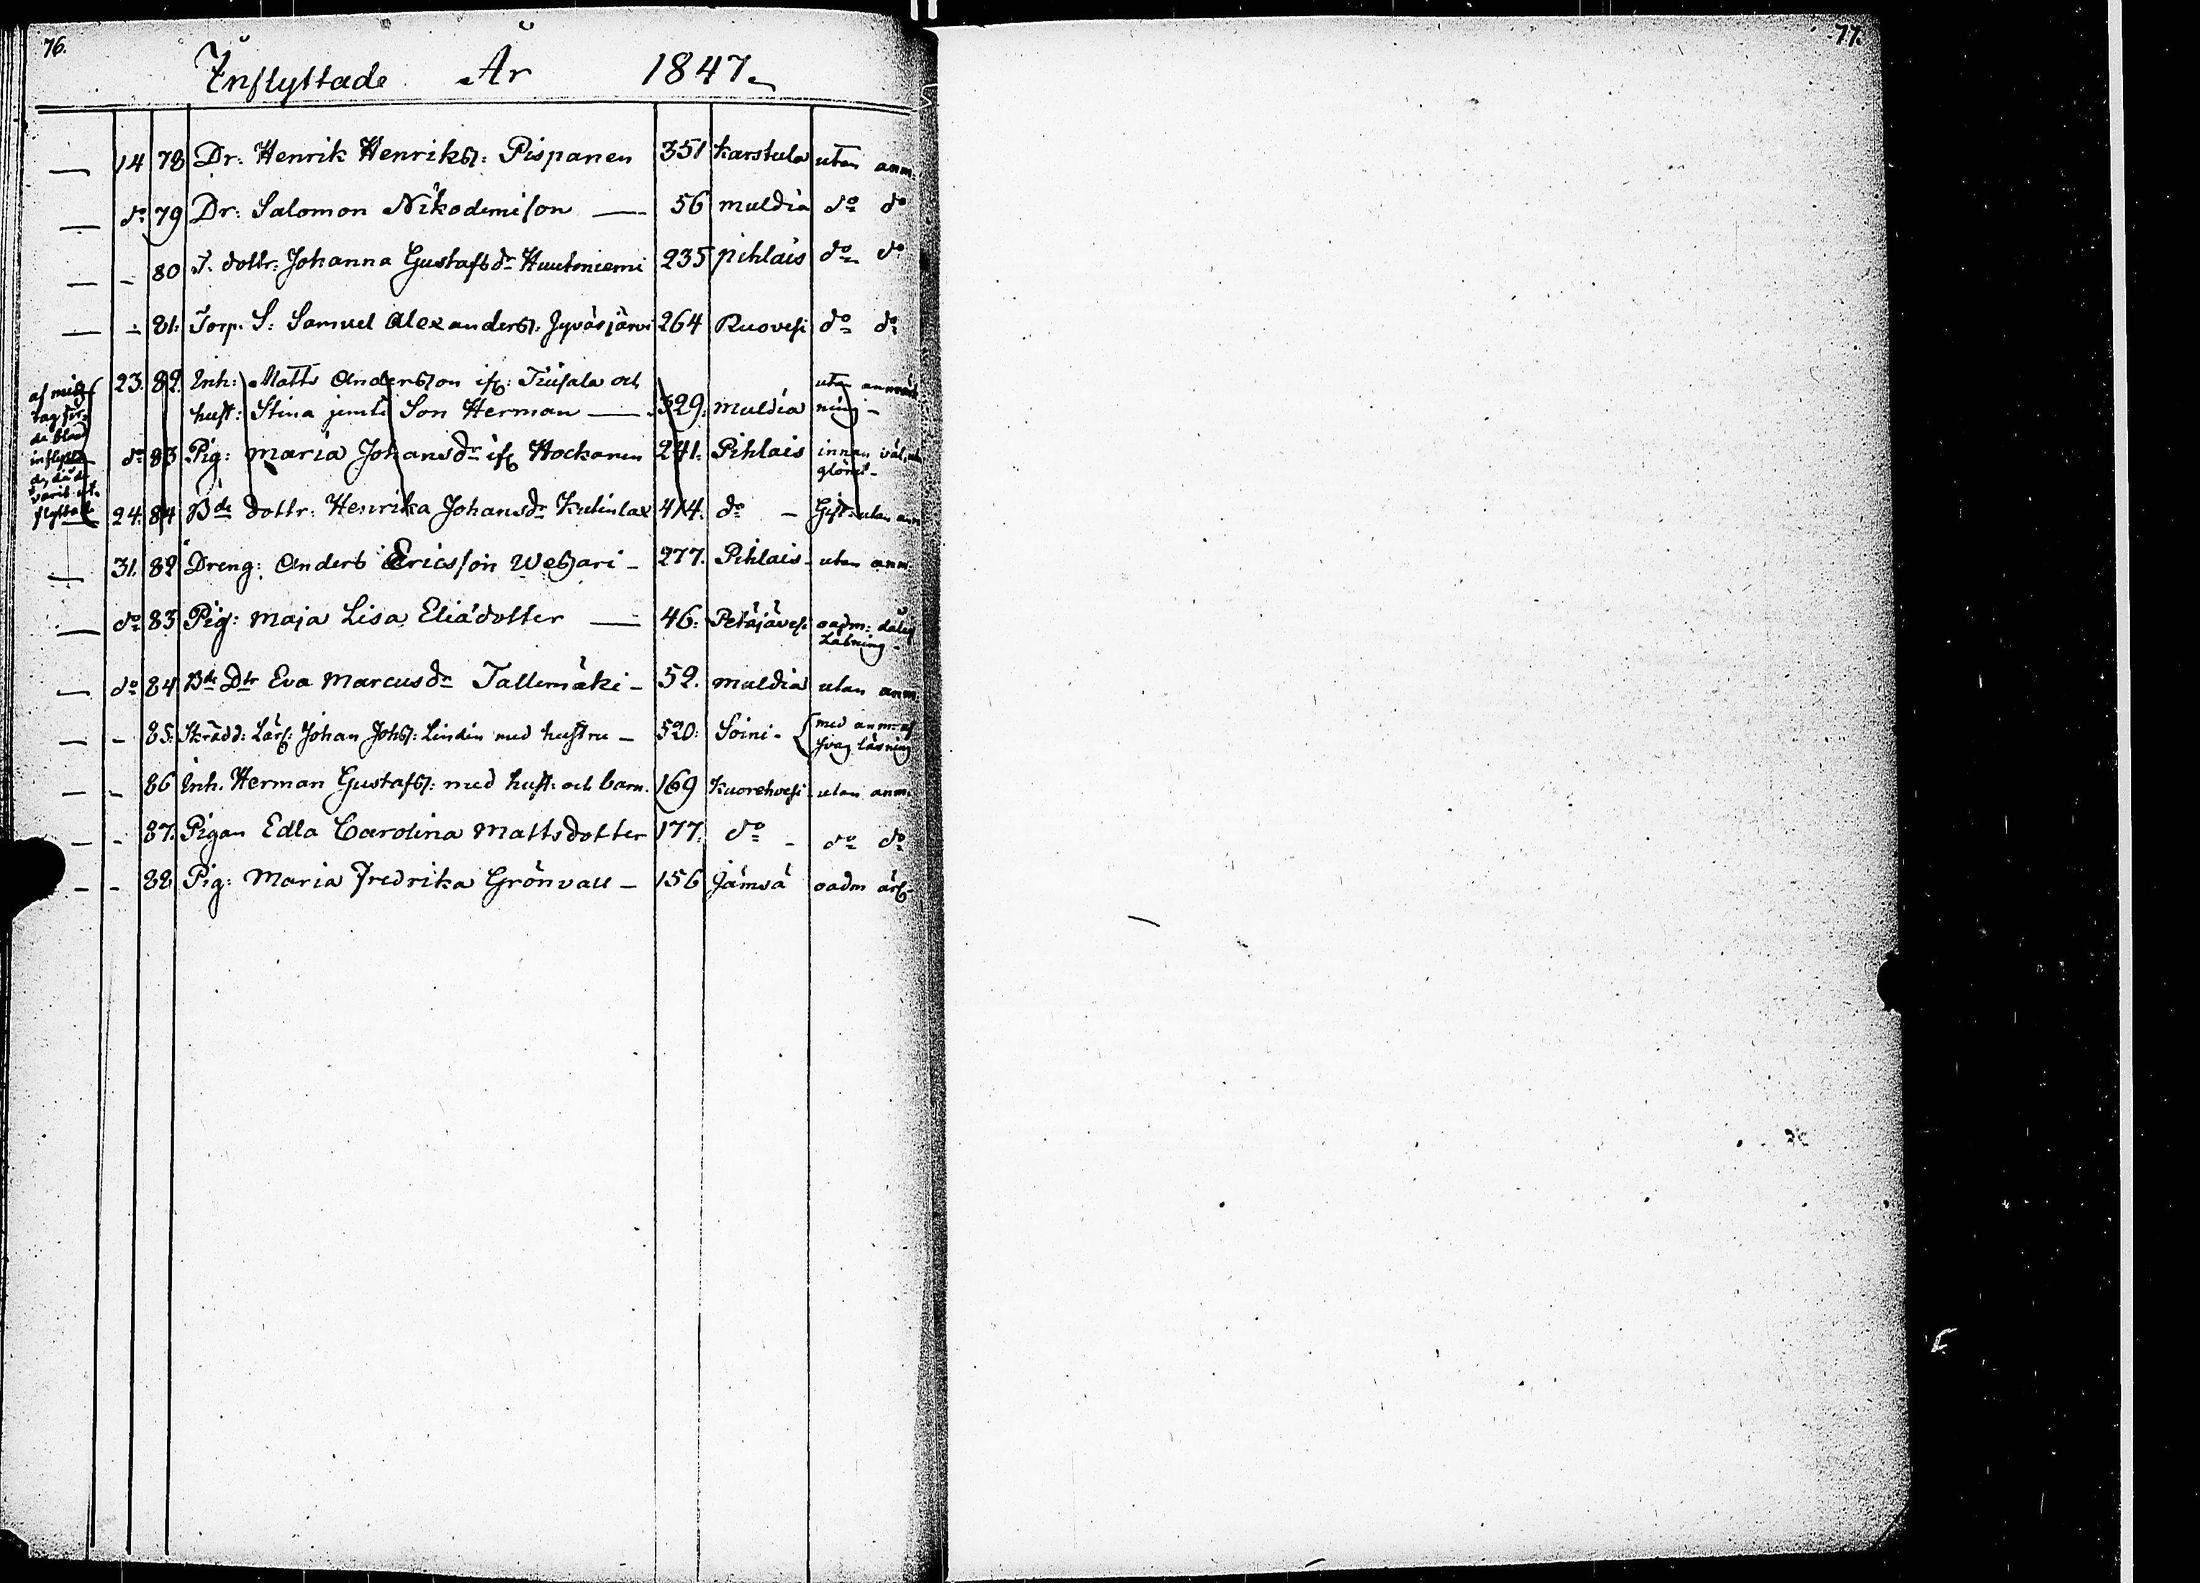 76.
77.
Inflyttade År 1847.
— 14 78 Dr: Henrik Henrikss: Pispanen 351 Karstula utan anm.
— do 79 Dr: Salomon Nikodemisson — 56 Muldia do do
— - 80 T. dottr: Johanna Gustafsdr Huutoniemi 235 Pihlais do do
— - 81. Torp. S: Samuel Alexanderss: Jyväsjärvi 264 Ruovesi do do
23. 82. Inh: Matts Andersson ifr: och utan anmärk
hust: Stina jemte Son Herman — 329. Muldia ning -
do 83 Pig: Maria Johansdr ifr Hockanen 241. Pihlais innan
24. 84 Bde dottr: Henrika Johansdr 414. do - Gift: utan anm
af misstag
inflytta
varit ut-
flyttade
— 31. 82 Dreng: Anders Ericsson - 277. Pihlais - utan anm.
— do 83 Pig: Maja Lisa Eliädotter — 46. Petäjävesi oadm: dålig
Läsning -
— do 84 Bde Dtr Eva Marcusdr Tallemäki - 52. Muldia utan anm.
— - 85. Skrädd: Lärl: Johan Johss: Lindin med hustru - 520. Soini - med anm: af
svag läsning
— - 86 Inh. Herman Gustafss: med hust: och barn. 169 Kuorehvesi utan anm.
— - 87. Pigan Edla Carolina Mattsdotter 177. do - do do
— - 88 Pig: Maria Fredrika Grönvall - 156 Jämsä oadm